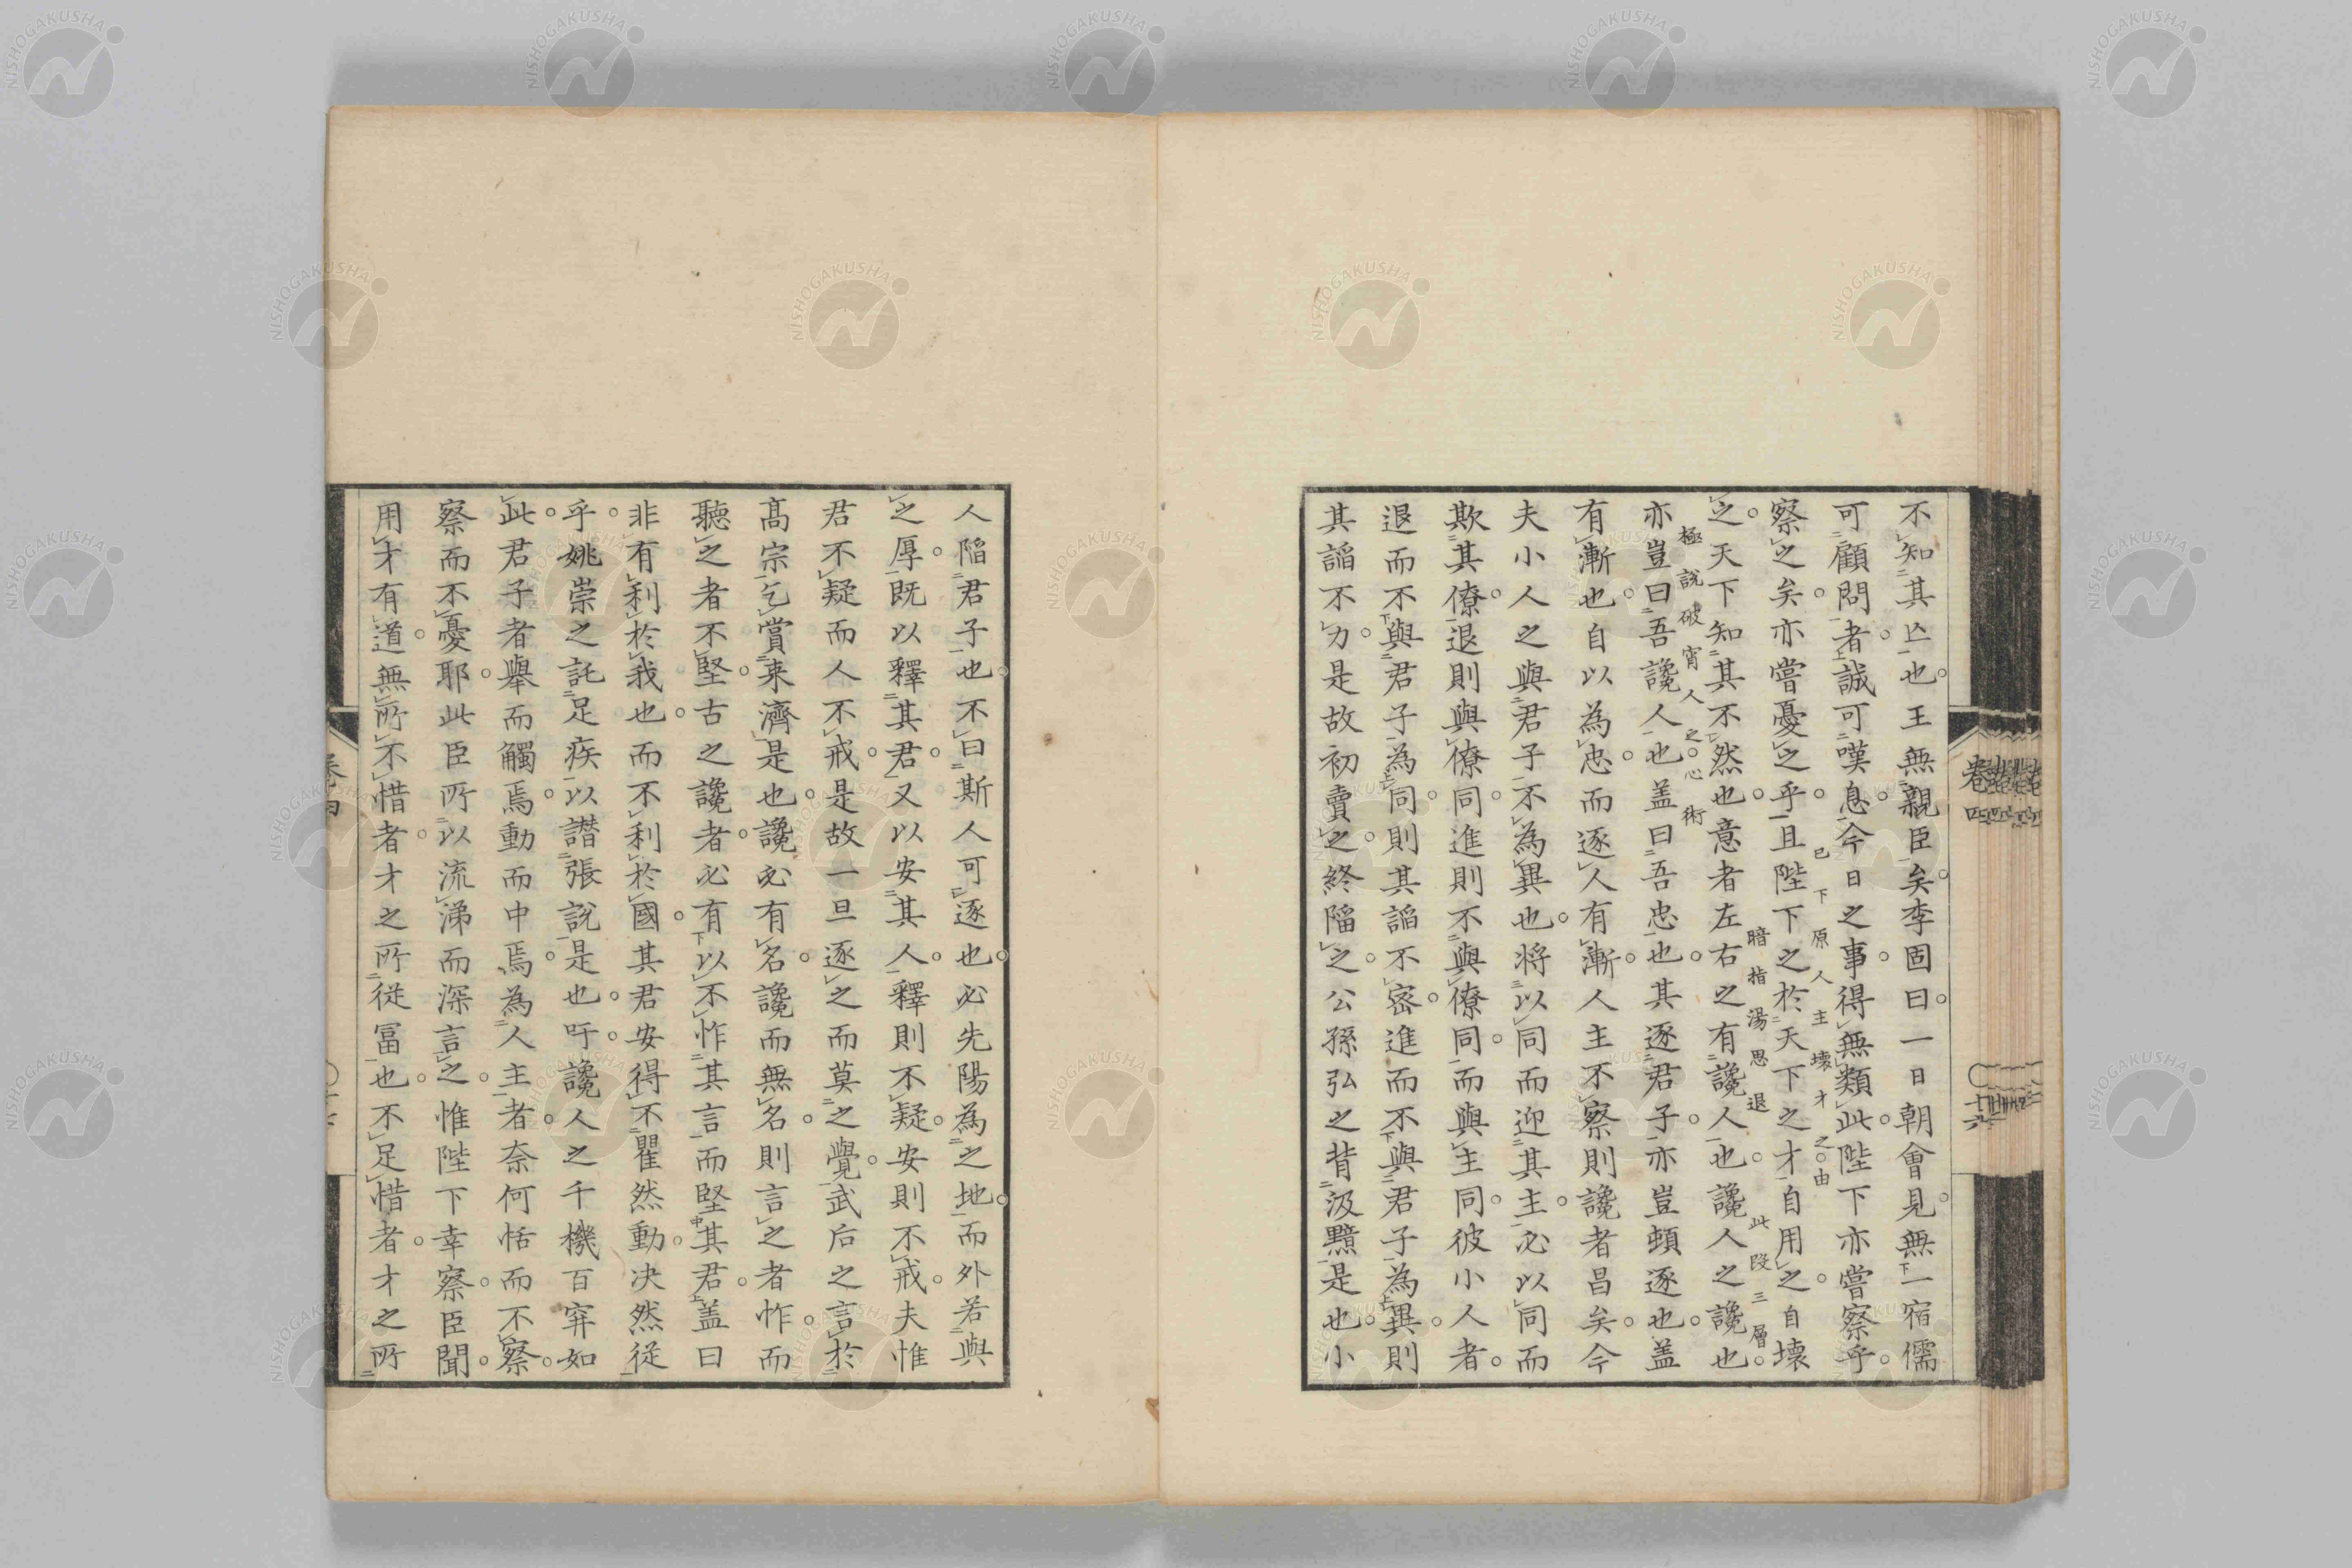 不知其亾也王無親臣矣李固曰一日朝會見無一宿儒
可顧問者誠可嘆息今日之事得無類此陛下亦嘗察乎
已下原人主壞才之由
察之矣亦嘗憂之乎且陛下之於天下之才自用之自壞
暗指湯思退
此段三層
之天下知其不然也意者左右之有讒人也讒人之讒也
極說破宵人之心術
亦豈曰吾讒人也盖曰吾忠也其逐君子亦豈頓逐也盖
有漸也自以為忠而逐人有漸人主不察則讒者昌矣今
夫小人之與君子不為異也将以同而迎其主必以同而
欺其僚退則與僚同進則不與僚同而與主同彼小人者
退而不與君子為同則其謟不密進而不與君子為異則
其謟不力是故初賣之終陷之公孫弘之背汲黯是也小
卷四
十六
人陷君子也不曰斯人可逐也必先陽為之地而外若與
之厚既以釋其君又以安其人釋則不疑安則不戒夫惟
君不疑而人不戒是故一旦逐之而莫之覺武后之言於
髙宗乞賞来濟是也讒必有名讒而無名則言之者怍而
聽之者不堅古之讒者必有以不怍其言而堅其君盖曰
非有利於我也而不利於國其君安得不瞿然動决然従
乎姚崇之託足疾以譛張說是也吁讒人之千機百穽如
此君子者舉而觸焉動而中焉為人主者奈何恬而不察
察而不憂耶此臣所以流涕而深言之惟陛下幸察臣聞
用才有道無所不惜者才之所従冨也不足惜者才之所
卷四